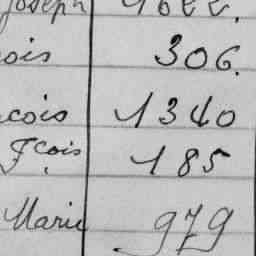 Joseph
ois 306.
cois 1340
Fçois 185
Marie 979